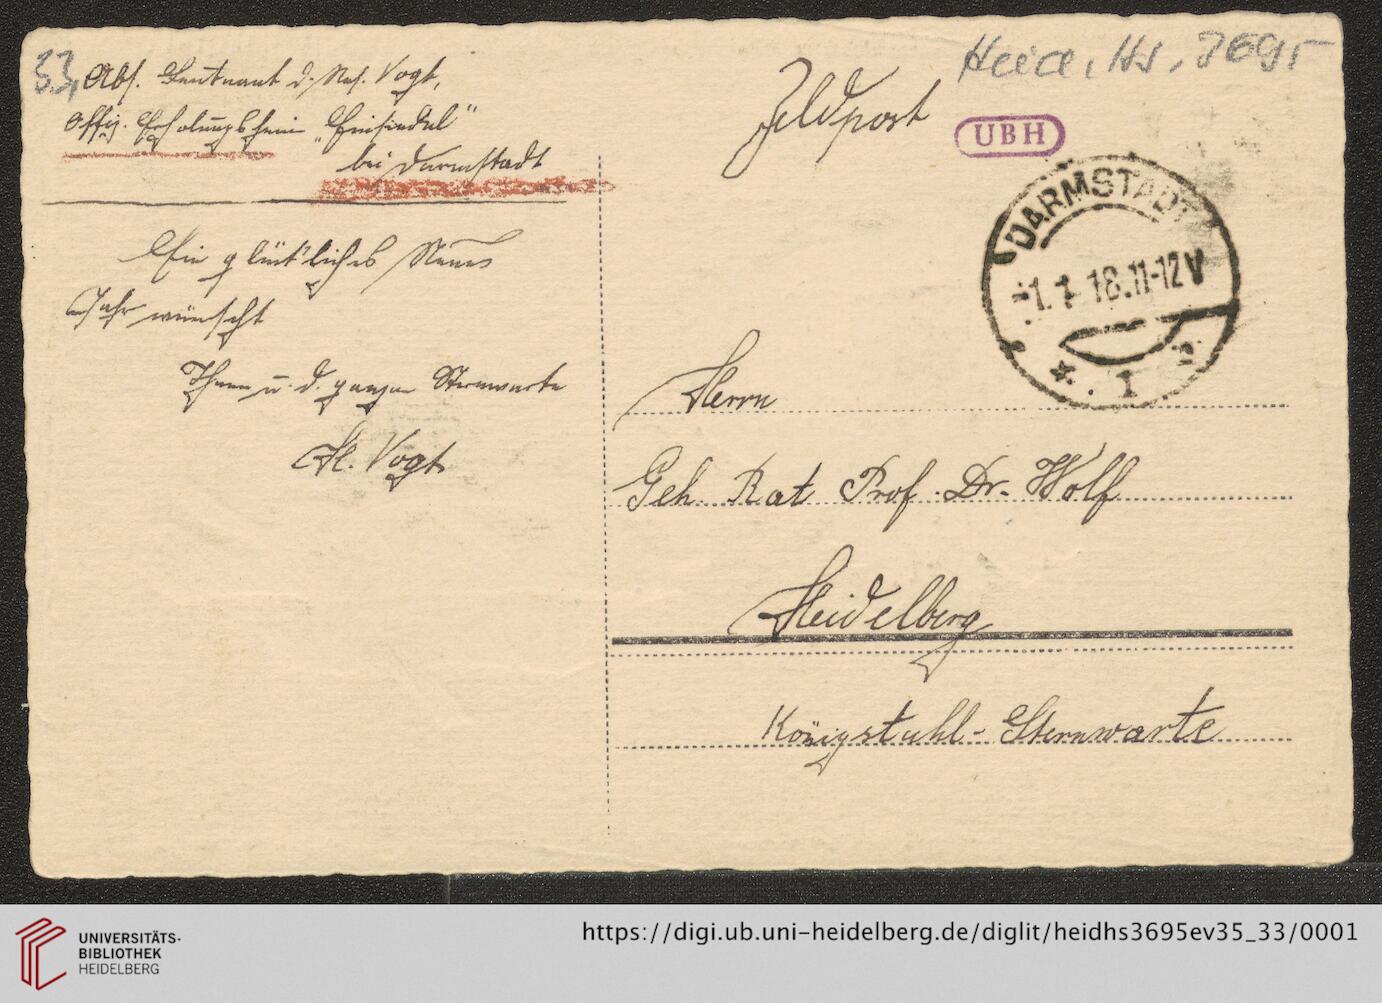 33,
Abs. Leutnant d. Res. Vogt,
Offiz. Erholungsheim „Einsiedel"
bei Darmstadt
Ein glückliches Neues
Jahr wünscht
Ihnen u. d. ganzen Sternwarte
H. Vogt
Feldpost
Heid. Hs. 3695
UBH
DARMSTADT
1.1.18.11-12V
* 1
Herrn
Geh. Rat Prof. Dr. Wolf
Heidelberg
Königstuhl-Sternwarte
UNIVERSITÄTS-
BIBLIOTHEK
HEIDELBERG
https://digi.ub.uni-heidelberg.de/diglit/heidhs3695ev35_33/0001